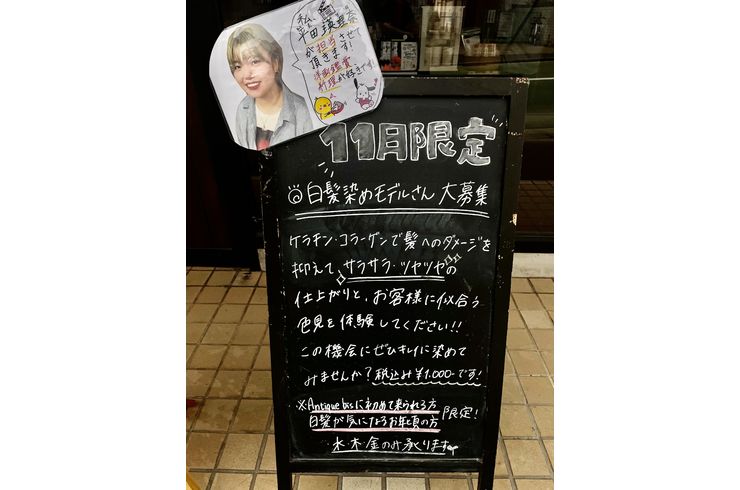 私、平田瑛理奈
が担当させて
頂きます!
映画鑑賞
料理が好きです!
11月限定
◎白髪染めモデルさん大募集
ケラチン・コラーゲンで髪へのダメージを
抑えて、サラサラ・ツヤツヤの
仕上がりと、お客様に似合う
色見を体験してください!!
この機会にぜひキレイに染めて
みませんか?税込み¥1,000-です!
※Antique bisに初めて来られる方
白髪が気になるお年頃の方 限定!
水・木・金のみ承ります